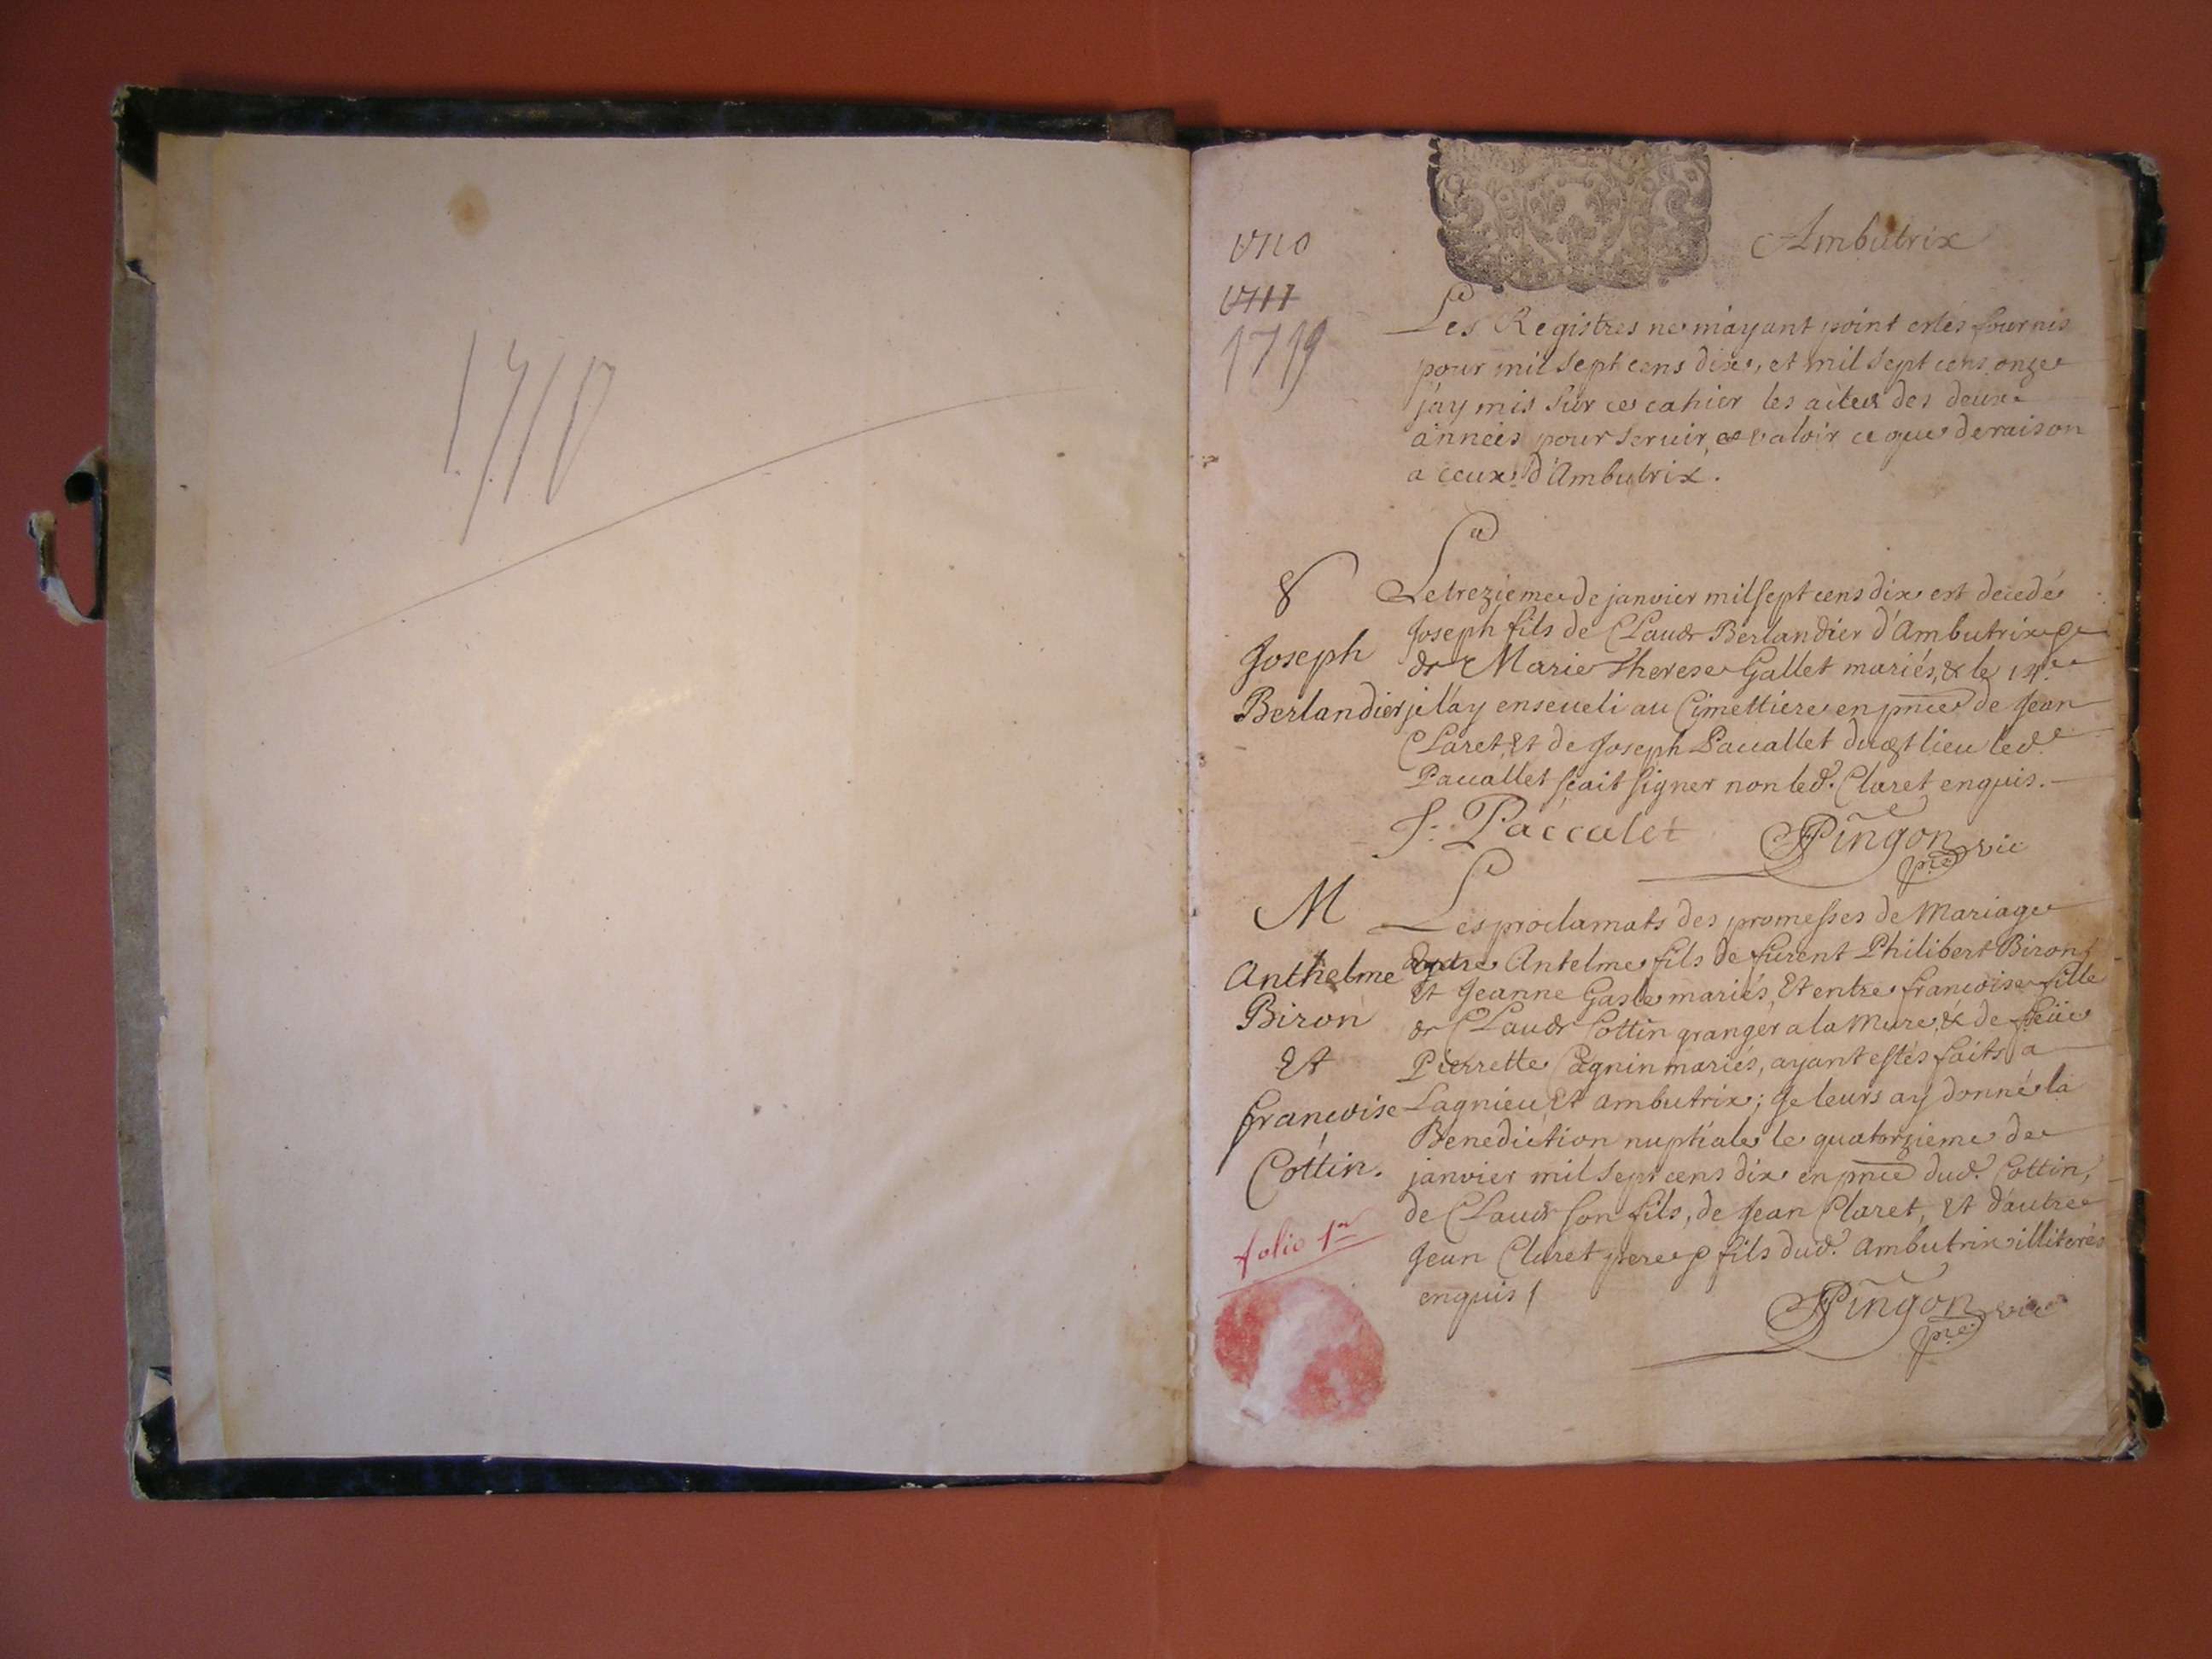 1710
1710
1711
1719
Ambutrix
Les Registres ne m'ayant point estés fournis
pour mil sept cens dix, et mil sept cens onze
j'ay mis sur ce cahier les actes des deux
années pour servir, et valoir ce que de raison
a ceux d'Ambutrix.
Joseph
Berlandier
Le trezieme de janvier mil sept cens dix est decedé
Joseph fils de Claude Berlandier d'Ambutrix &
de Marie Therese Gallet mariés, & le 14e
je l'ay enseveli au Cimettiere en pnce de Jean
Claret, Et de Joseph Paccallet dud. lieu led.
Paccallet sçait signer non led. Claret enquis.
J. Paccalet
Pingon pre vic
M
Anthelme
Biron
Et
francoise
Cottin.
Les proclamats des promesses de Mariage
entre Antelme fils de furent Philibert Biron,
Et Jeanne Gasle mariés, Et entre francoise fille
de Claude Cottin granger a la Mure, & de feüe
Pierrette Cagnin mariés, ayant estés faits a
Lagnieu Et ambutrix; Je leurs ay donné la
Benediction nuptiale le quatorzieme de
janvier mil sept cens dix en pnce dud. Cottin,
de Claude son fils, de Jean Claret, Et d'autre
Jean Claret pere & fils dud. Ambutrix illiterés
enquis /
Pingon pre vic
folio 1er